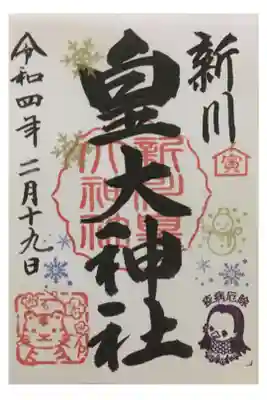 新川
寅
皇大神社
新川皇大神社
令和四年二月十九日
疫病厄除